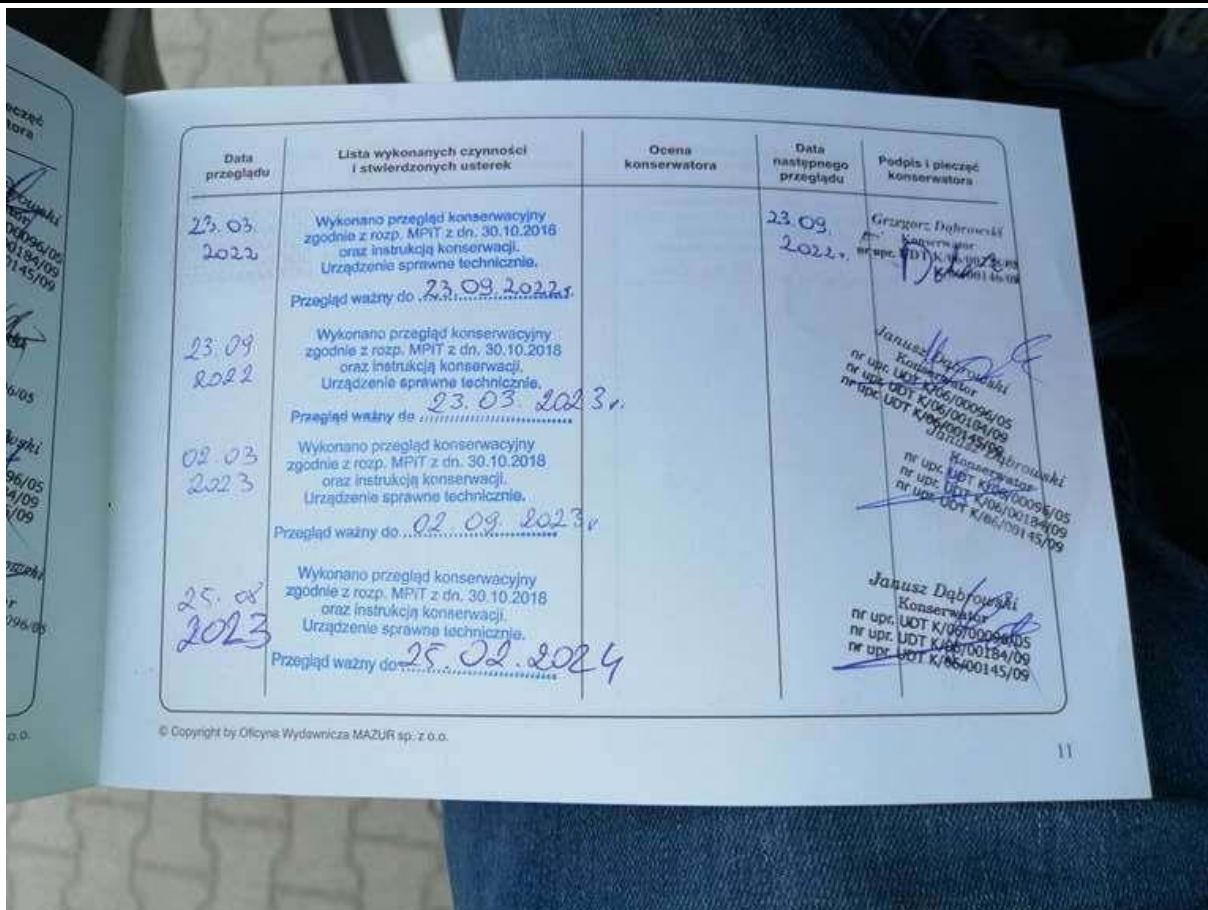 Data przeglądu
Lista wykonanych czynności i stwierdzonych usterek
Ocena konserwatora
Data następnego przeglądu
Podpis i pieczęć konserwatora
23.03. 2022
Wykonano przegląd konserwacyjny
zgodnie z rozp. MPiT z dn. 30.10.2018
oraz instrukcją konserwacji.
Urządzenie sprawne technicznie.
Przegląd ważny do 23.09.2022r.
23.09 2022r.
Grzegorz Dąbrowski
Konserwator
nr upr. UDT
23.09 2022
Wykonano przegląd konserwacyjny
zgodnie z rozp. MPiT z dn. 30.10.2018
oraz instrukcją konserwacji.
Urządzenie sprawne technicznie.
Przegląd ważny do 23.03.2023r.
Janusz Dąbrowski
Konserwator
nr upr. UDT K/06/00096/05
nr upr. UDT K/06/00184/09
nr upr. UDT K/06/00145/09
02.03 2023
Wykonano przegląd konserwacyjny
zgodnie z rozp. MPiT z dn. 30.10.2018
oraz instrukcją konserwacji.
Urządzenie sprawne technicznie.
Przegląd ważny do 02.09.2023r
Janusz Dąbrowski
Konserwator
nr upr. UDT K/06/00096/05
nr upr. UDT K/06/00184/09
nr upr. UDT K/06/00145/09
25.08 2023
Wykonano przegląd konserwacyjny
zgodnie z rozp. MPiT z dn. 30.10.2018
oraz instrukcją konserwacji.
Urządzenie sprawne technicznie.
Przegląd ważny do 25.02.2024
Janusz Dąbrowski
Konserwator
nr upr. UDT K/06/00096/05
nr upr. UDT K/06/00184/09
nr upr. UDT K/06/00145/09
© Copyright by Oficyna Wydawnicza MAZUR sp. z o.o.
11